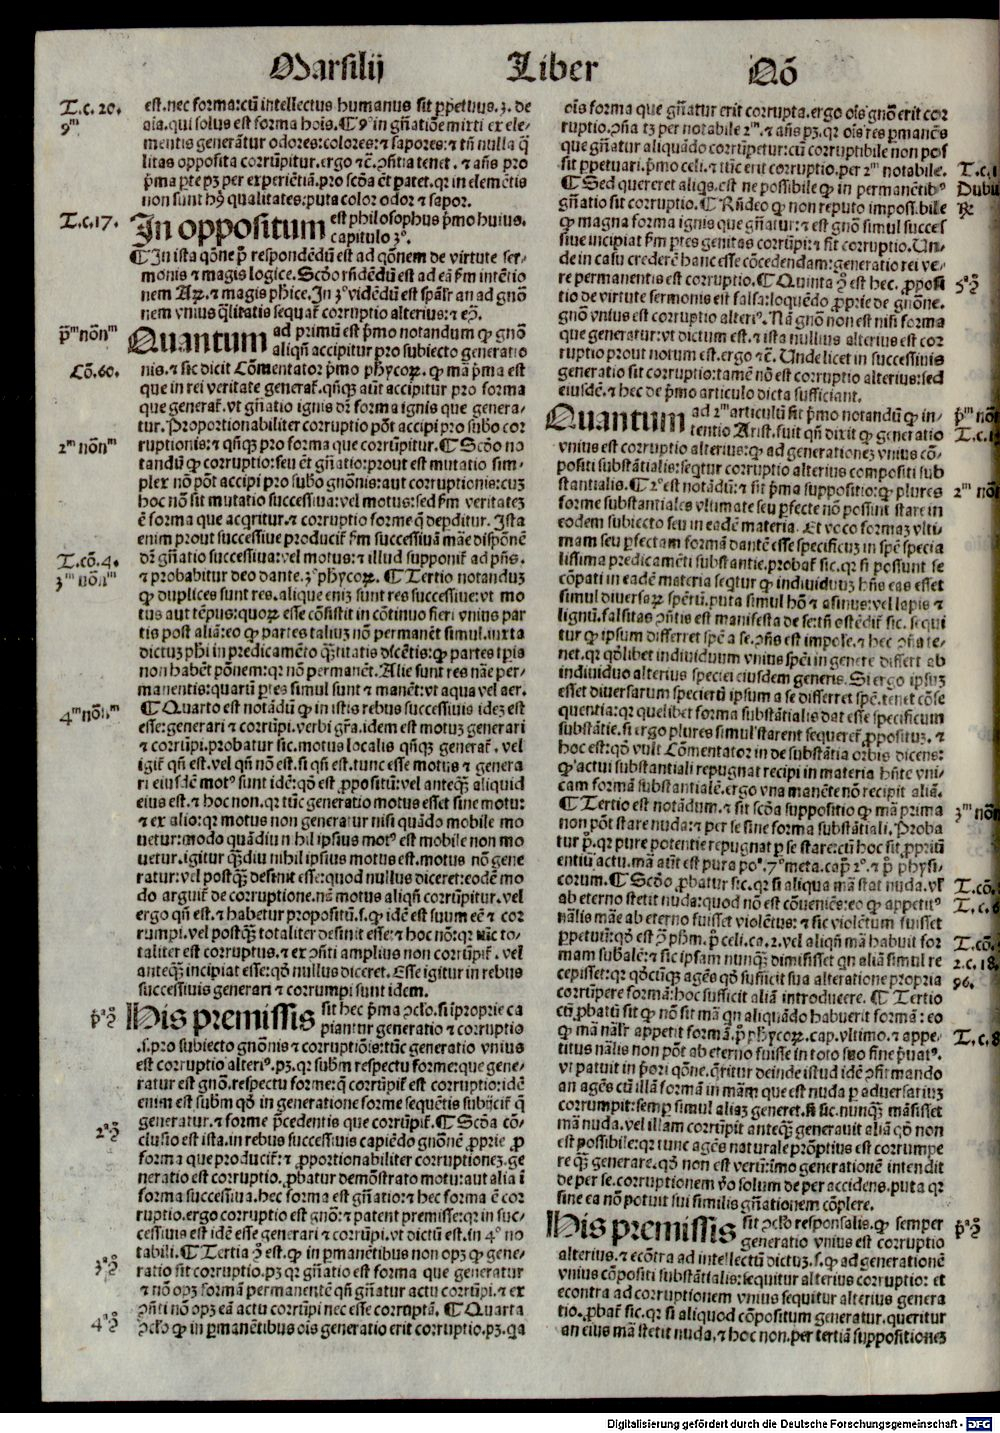 Marsilij Liber Nõ
T.c.20.
9ᵐ
est.nec forma:cũ intellectus humanus sit ꝑpetuus.ʒ.de
aĩa.qui solus est forma hoĩs.¶9º in gñatiõe mixti ex ele-
mentis generãtur odores:colores:⁊ sapores:⁊ tñ nulla q̃
litas opposita corrũpitur.ergo ⁊c̃.ꝯñtia tenet.⁊ añs pro
p̃ma ꝑte pʒ per experiẽtiã.pro scđa ẽt patet.qꝛ in elemẽtis
non sunt hꝰ qualitates:puta color odor ⁊ sapor.
T.c.17.
In oppositum est philosophus p̃mo huius.
capitulo ʒº.
¶In ista qõne p̃ respondẽdũ est ad qõnem de virtute ser-
monis ⁊ magis logice.Scđo rñdẽdũ est ad eã ẜm intẽtio
nem Aꝝ.⁊ magis phĩce.In ʒº vidẽdũ est spãlr̃ an ad gnõ
nem vnius q̃litatis sequat̃ corruptio alterius:⁊ eꝯ̃.
p̃ᵐ nõnᵐ
Quantum ad primũ est p̃mo notandum ꝙ gnõ
aliqñ accipitur pro subiecto generatio
Cõ.60.
nis.⁊ sic dicit Cõmentator p̃mo phycoꝝ.ꝙ mã p̃ma est
que in rei veritate generat̃.qñqʒ aũt accipitur pro forma
que generat̃.vt gñatio ignis dr̃ forma ignis que genera-
tur.Proportionabiliter corruptio põt accipi pro sub̃o cor
2ᵐ nõnᵐ
ruptionis:⁊ qñqʒ pro forma que corrũpitur.¶Scđo no
tandũ ꝙ corruptio:seu ẽt gñatio:prout est mutatio sim-
plex nõ põt accipi pro sub̃o gnõnis:aut corruptionis:cuʒ
hoc nõ sit mutatio successiua:vel motus:sed ẜm veritateʒ
ẽ forma que acqritur.⁊ corruptio forme q̃ deꝑditur.Ista
enim prout successiue producit̃ ẜm successiuã mãe dispõnẽ
T.cõ.4.
dr̃ gñatio successiua:vel motus:⁊ illud supponit̃ ad pñs.
ʒᵐ nõnᵐ
⁊ probabitur deo dante.ʒº phycoꝝ.¶Tertio notanduʒ
ꝙ duplices sunt res.alique eniʒ sunt res successiue:vt mo
tus aut tẽpus:quoꝝ esse cõsistit in cõtinuo fieri vnius par
tis post aliã:eo ꝙ partes taliuʒ nõ permanẽt simul.iuxta
dictuʒ phi in predicamẽto q̃titatis dicẽtis:ꝙ partes tꝑis
non habẽt põnem:qꝛ nõ permanẽt.Alie sunt res nãe per-
manentis:quarũ ꝑtes simul sunt ⁊ manẽt:vt aqua vel aer.
4ᵐ nõnᵐ
¶Quarto est notãdũ ꝙ in istis rebus successiuis ideʒ est
esse:generari ⁊ corrũpi.verbi gr̃a.idem est motuʒ generari
⁊ corrũpi.probatur sic.motus localis qñqʒ generat̃.vel
igit̃ qñ est.vel qñ nõ est.si qñ est.tunc esse motus ⁊ genera
ri eiusdẽ motꝰ sunt idẽ:qõ est ꝓpositũ:vel anteqʒ aliquid
eius est.⁊ hoc non.qꝛ tũc generatio motus esset sine motu:
⁊ ex alio:qꝛ motus non generatur nisi quãdo mobile mo
uetur:modo quãdiu nihil ipsius motꝰ est mobile non mo
uetur.igitur qʒdiu nihil ipsius motus est.motus nõ gene
ratur:vel postqʒ desinit esse:quod nullus diceret:eodẽ mo
do arguit̃ de corruptione.nã motus aliqñ corrũpitur.vel
ergo qñ est.⁊ habetur propositũ.s.ꝙ idẽ est suum eẽ ⁊ cor
rumpi.vel postqʒ totaliter desinit esse:⁊ hoc nõ:qꝛ tũc to-
taliter est corruptus.⁊ ex ꝯñti amplius non corrũpit̃.vel
anteqʒ incipiat esse:qõ nullus diceret.Esse igitur in rebus
successiuis generari ⁊ corrumpi sunt idem.
pᵃ ꝯ̃
His premissis sit hec p̃ma ꝯclo.si ĩproprie ca
piantur generatio ⁊ corruptio
.s.pro subiecto gnõnis ⁊ corruptiõis:tũc generatio vnius
est corruptio alterꝰ.pʒ.qꝛ subm̃ respectu forme:que gene-
ratur est gnõ.respectu forme:q̃ corrũpit̃ est corruptio:idẽ
enim est subm̃ qõ in generatione forme sequẽtis subijcit̃ q̃
generatur.⁊ forme p̃cedentis que corrũpit̃.¶Scđa cõ-
2ᵃ ꝯ̃
clusio est ista.in rebus successiuis capiẽdo gnõnẽ ꝓprie ꝓ
forma que producit̃:⁊ ꝓportionabiliter corruptioneʒ.ge
neratio est corruptio.ꝓbatur demõstrato motu:aut alia ĩ
forma successiua.hec forma est gñatio:⁊ hec forma ẽ cor
ruptio.ergo corruptio est gnõ:⁊ patent premisse:qꝛ in suc-
cessiuis est idẽ esse generari ⁊ corrũpi.vt dictũ est.in 4º no
tabili.¶Tertia ꝯ̃ est.ꝙ in ꝑmanẽtibus non opʒ ꝙ gene-
ʒᵃ ꝯ̃
ratio sit corruptio.pʒ qꝛ gñatio est forma que generatur
⁊ nõ opʒ formã permanentẽ qñ gñatur actu corrũpi.⁊ ex
ꝯñti nõ opʒ eã actu corrũpi nec esse corruptã.¶Quarta
4ᵃ ꝯ̃
ꝯclo ꝙ in ꝑmanẽtibus oĩs generatio erit corruptio.pʒ.qa
oĩs forma que gñatur erit corrupta.ergo oĩs gnõ erit cor
ruptio.ꝯña tʒ per notabile 2ᵐ.⁊ añs pʒ.qꝛ oĩs res ꝑmanẽs
que gñatur aliquãdo corrũpetur:cũ corruptibile non pos
sit ꝑpetuari.p̃mo celi.⁊ tũc erit corruptio.per 2ᵐ notabile.
T.c.1
¶Sed quereret aliqs.est ne possibile ꝙ in permanẽtibꝰ
Dubiu
gñatio sit corruptio.¶Rñdeo ꝙ non reputo imposs.bile
℞
ꝙ magna forma ignis que gñatur:⁊ est gnõ simul succes
siue incipiat ẜm ꝑtes genitas corrũpi:⁊ sit corruptio.Un-
de in casu crederẽ hanc esse cõcedendam:generatio rei ve-
re permanentis est corruptio.¶Quinta ꝯ̃ est hec.ꝓposi
5ᵃ ꝯ̃
tio de virtute sermonis est falsa:loquẽdo ꝓprie de gnõne.
gnõ vnius est corruptio alterꝰ.Nã gnõ non est nisi forma
que generatur:vt dictum est.⁊ ista nullius alterius est cor
ruptio prout notum est.ergo ⁊c̃.Unde licet in successinis
generatio sit corruptio:tamẽ nõ est corruptio alterius:sed
eiusdẽ.⁊ hec de p̃mo articulo dicta sufficiant.
p̃ᵐ nõ
Quantum ad 2ᵐ articulũ sit p̃mo notandũ ꝙ in-
tentio Arist.fuit qñ dixit ꝙ generatio
T.c.1
vnius est corruptio alterius:ꝙ ad generationeʒ vnius cõ-
positi substãtialis:seqtur corruptio alterius compositi sub
stantialis.¶2º est notãdũ:⁊ sit p̃ma suppositio:ꝙ plures
2ᵐ nõ
forme substantiales vltimate seu ꝑfecte nõ possunt stare in
eodem subiecto seu in eadẽ materia.Et voco formaʒ vlti-
mam seu ꝑfectam formã dantẽ esse specificuʒ in spẽ specia
lissima predicamẽti substantie.probat̃ sic.qꝛ si possunt se
cõpati in eadẽ materia seqtur ꝙ indiuiduuʒ hñs eas esset
simul diuersaꝝ spẽrũ.puta simul hõ ⁊ asinus:vel lapis ⁊
lignũ.falsitas ꝯñtis est manifesta de se:tñ ostẽdit̃ sic.sequi
tur ꝙ ipsum differret spẽ a se.ꝯñs est impole.⁊ hec ꝯña te-
net.qꝛ qõlibet indiuiduum vnius spẽi in genere differt ab
indiuiduo alterius speciei eiusdem generis.Si ergo ipsuʒ
esset diuersarum specierũ ipsum a se differret spẽ.tenet cõse
quentia:qꝛ quelibet forma substãtialis dat esse specificum
substãtie.si ergo plures simul starent sequeret̃ ꝓpositũ.⁊
hoc est:qõ vult Cõmentator in de substãtia orbis dicens:
ꝙ actui substantiali repugnat recipi in materia hñte vni-
cam formã substantialẽ.ergo vna manẽte nõ recipit aliã.
¶Tertio est notãdum.⁊ sit scđa suppositio ꝙ mã prima
ʒᵐ nõn
non põt stare nuda:⁊ per se sine forma substãtiali.Proba
tur p̃.qꝛ pure potentie repugnat ꝑ se stare:cũ hoc sit ꝓpriũ
entiũ actu.mã aũt est pura poª.7º meta.cap̃ 2º.⁊ p̃ physi-
corum.¶Scđo ꝓbatur sic.qꝛ si aliqua mã stat nuda.vl̃
T.cõ.
ab eterno stetit nuda:quod nõ est cõueniẽs:eo ꝙ appetitꝰ
T.c.6
nãlis mãe ab eterno fuisset violẽtus:⁊ sic violẽtum fuisset
ꝑpetuũ:qõ est ꝯ̃ phm̃.p̃ celi.ca.2.vel aliqñ mã habuit for
T.cõ.
mam subalẽ:⁊ sic ipsam nunqʒ dimisisset qn aliã simul re
2.c.18.
cepisset:qꝛ qõcũqʒ agẽs qõ sufficit sua alteratione propria
96.
corrũpere formã:hoc sufficit aliã introducere.¶Tertio
cũ ꝓbatũ sit ꝙ nõ sit mã qn aliquãdo habuerit formã:eo
ꝙ mã nãlr̃ appetit formã.p̃ phycoꝝ.cap.vltimo.⁊ appe-
T.c.8
titus nãlis non põt ab eterno fuisse in toto suo fine p̃uatꝰ.
vt patuit in p̃ori qõne.q̃ritur deinde istud idẽ ꝯfirmando
an agẽs cũ illã formã in mãm que est nuda ꝑ aduersariuʒ
corrumpit:semꝑ simul aliaʒ generet.si sic.nunqʒ mãsisset
mã nuda.vel illam corrũpit anteqʒ generauit aliã qõ non
est possibile:qꝛ tunc agẽs naturale prõptius est corrumpe
re qʒ generare.qõ non est verũ:ĩmo generationẽ intendit
de per se.corruptionem v̾o solum de per accidens.puta qꝛ
sine ea nõ potuit sui similis gñationem cõplere.
p̃ᵃ ꝯ̃
His premissis sit ꝯclo responsalis.ꝙ semper
generatio vnius est corruptio
alterius.⁊ ecõtra ad intellectũ dictuʒ.s.ꝙ ad generationẽ
vnius cõpositi substãtialis:sequitur alterius corruptio: et
econtra ad corruptionem vnius sequitur alterius genera
tio.ꝓbat̃ sic.qꝛ si aliquod cõpositum generatur.queritur
an eius mã stetit nuda.⁊ hoc non.per tertiã suppositioneʒ
Digitalisierung gefördert durch die Deutsche Forschungsgemeinschaft - DFG